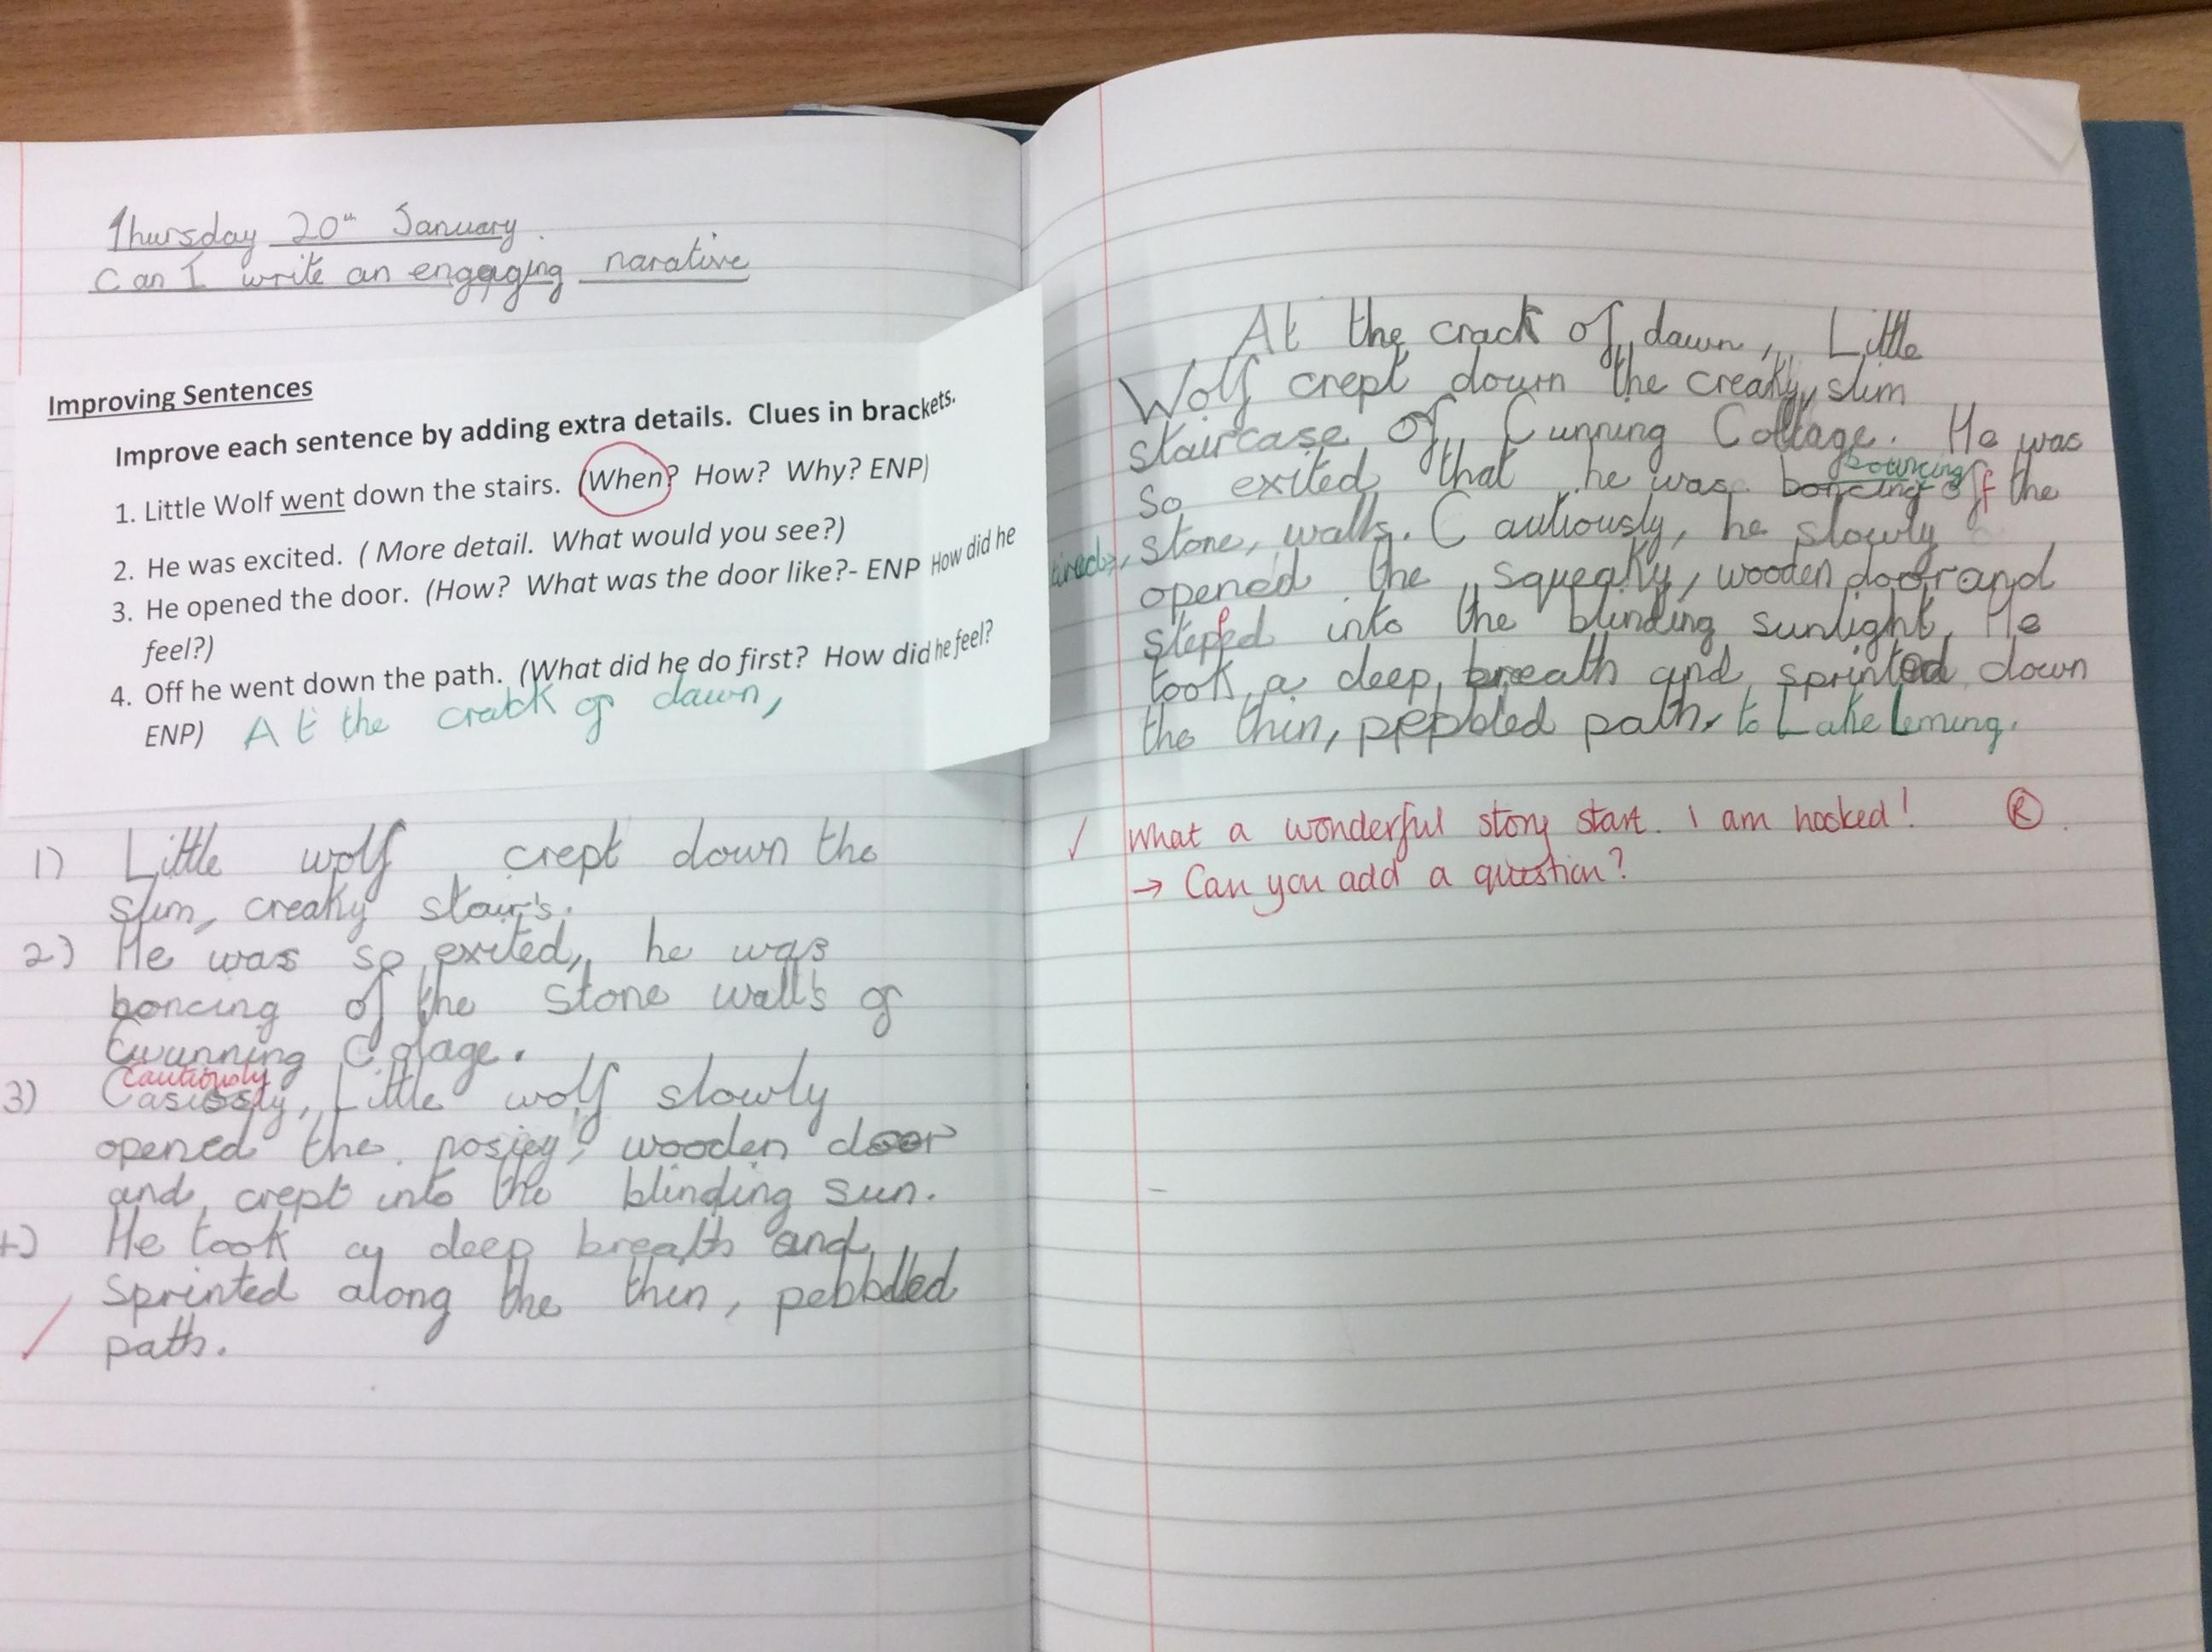 Thursday 20th January.
Can I write an engaging narative
Improving Sentences
Improve each sentence by adding extra details. Clues in brackets.
1. Little Wolf went down the stairs. (When? How? Why? ENP)
2. He was excited. ( More detail. What would you see?)
3. He opened the door. (How? What was the door like?- ENP How did he
feel?)
4. Off he went down the path. (What did he do first? How did he feel?
ENP) At the crack of dawn,
1) Little wolf crept down the
slim, creaky stairs.
2) He was so exited, he was
boncing of the stone walls of
Cwunning Cotage.
cautiously
3) Casiossly, Little wolf slowly
opened the nosiey, wooden door
and crept into the blinding sun.
4) He took a deep breath and
sprinted along the thin, pebbled
path.
At the crack of dawn, Little
Wolf crept down the creaky, slim
staircase of Cunning Cottage. He was
bouncing
so exited that he was boncing off the
stone, walls. Cautiously, he slowly
opened the squeaky, wooden door and
stepped into the blinding sunlight. He
took a deep breath and sprinted down
the thin, pepbled path, to Lake Leming.
What a wonderful story start. I am hooked! R
→ Can you add a question?